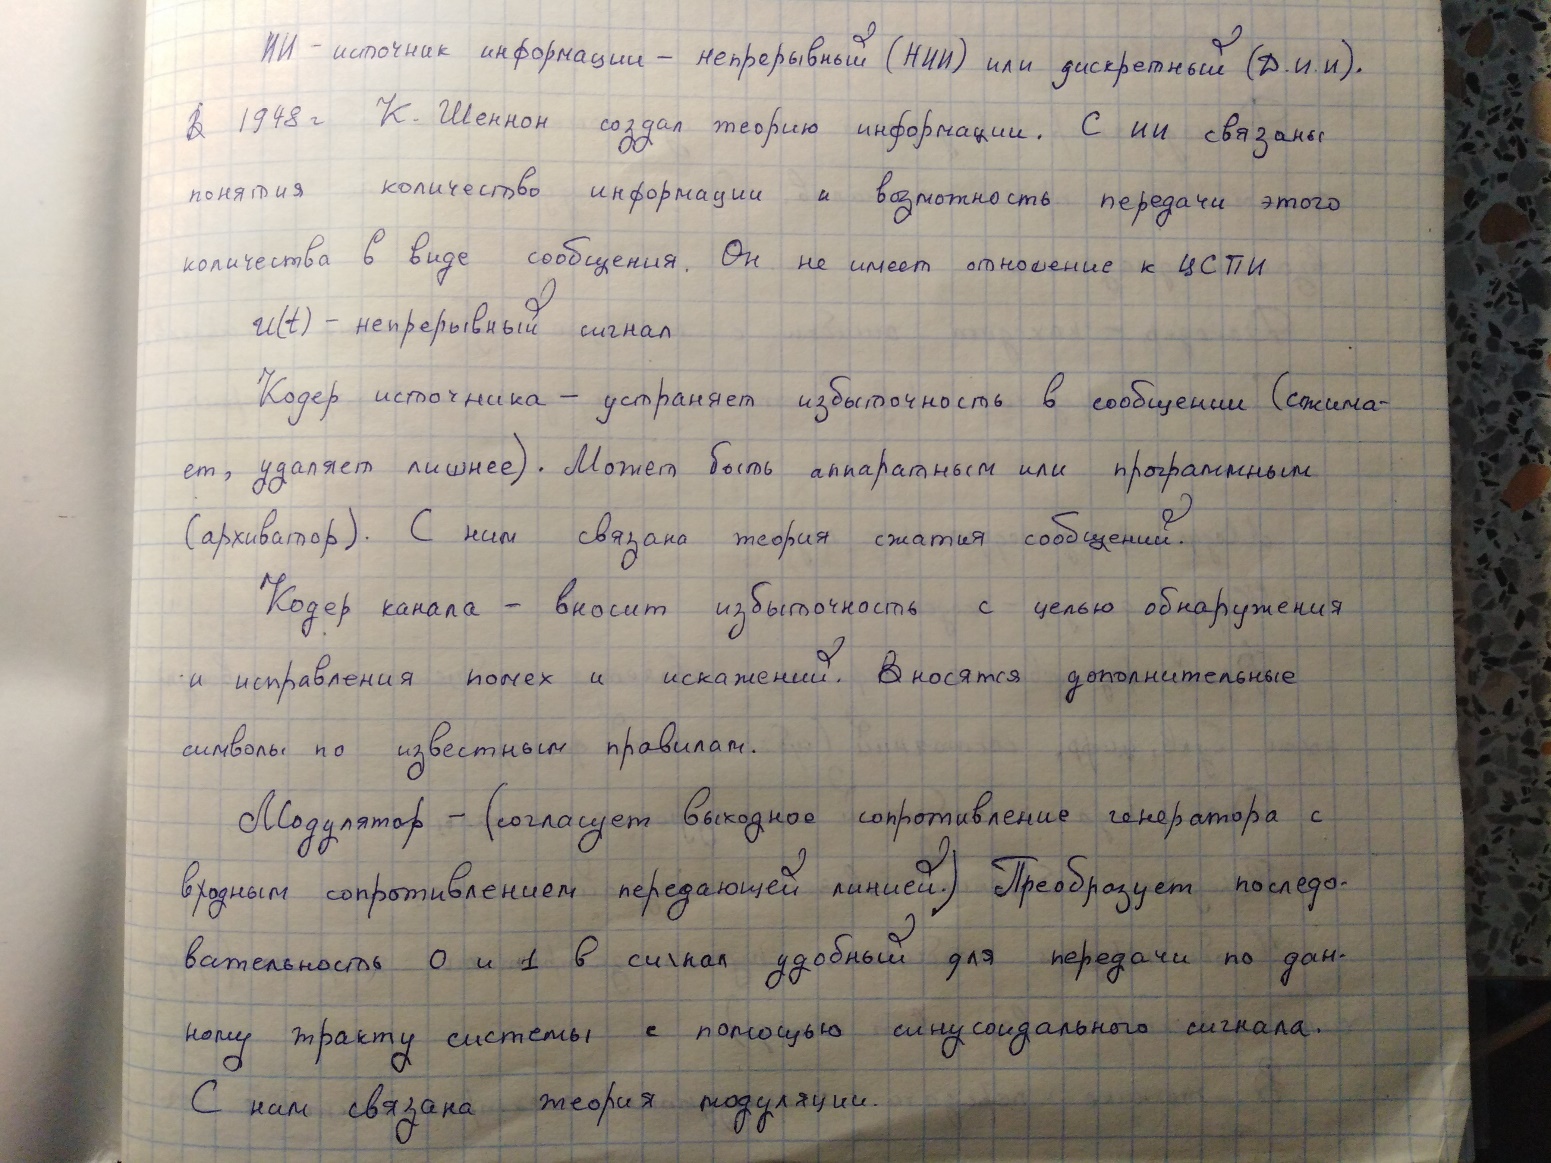 ИИ - источник информации - непрерывный (НИИ) или дискретный (Д.И.И).
В 1948г К. Шеннон создал теорию информации. С ИИ связаны
понятия количество информации и возможность передачи этого
количества в виде сообщения. Он не имеет отношение к ЦСПИ
u(t) - непрерывный сигнал
Кодер источника - устраняет избыточность в сообщении (сжима-
ет, удаляет лишнее). Может быть аппаратным или программным
(архиватор). С ним связана теория сжатия сообщений.
Кодер канала - вносит избыточность с целью обнаружения
и исправления помех и искажений. Вносятся дополнительные
символы по известным правилам.
Модулятор - (согласует выходное сопротивление генератора с
входным сопротивлением передающей линией.) Преобразует последо-
вательность 0 и 1 в сигнал удобный для передачи по дан-
ному тракту системы с помощью синусоидального сигнала.
С ним связана теория модуляции.